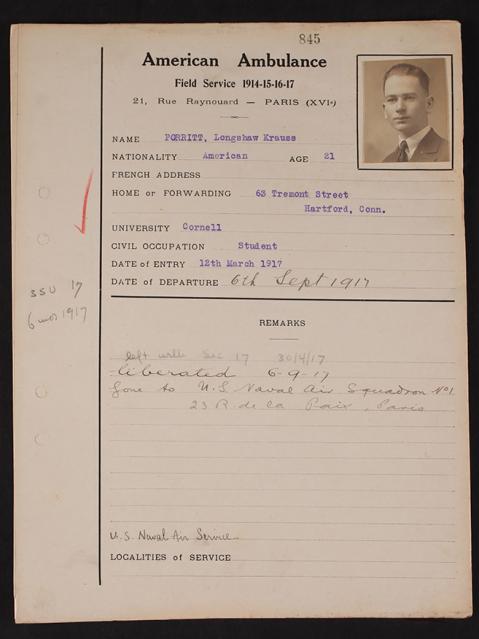 845
American Ambulance
Field Service 1914-15-16-17
21, Rue Raynouard — PARIS (XVIe)
NAME PORRITT, Longshaw Krauss
NATIONALITY American AGE 21
FRENCH ADDRESS
HOME or FORWARDING 63 Tremont Street
Hartford, Conn.
UNIVERSITY Cornell
CIVIL OCCUPATION Student
DATE of ENTRY 12th March 1917
DATE of DEPARTURE 6th Sept 1917
SSU 17
6 mos 1917
REMARKS
left with Sec 17 30/4/17
liberated 6-9-17
Gone to U.S Naval Air Squadron No 1
23 R. de la Paix, Paris
U.S. Naval Air Service
LOCALITIES of SERVICE